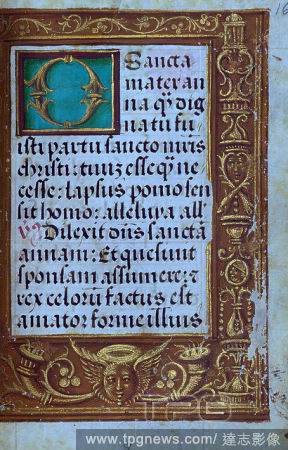 16
O Sancta
mater an
na q̄ dig
natu fu
isti partu sancto niris
christi: tuūz esse q̄ ne
cesse: lapsus pomo sen
sit homo: alleluya all
Dilexit dn̄s sanctā
annam: Et que sunt
sponsam assumere: r
rex celorū factus est
amator forme illius
TPG
www.tpgnews.com / 達志影像